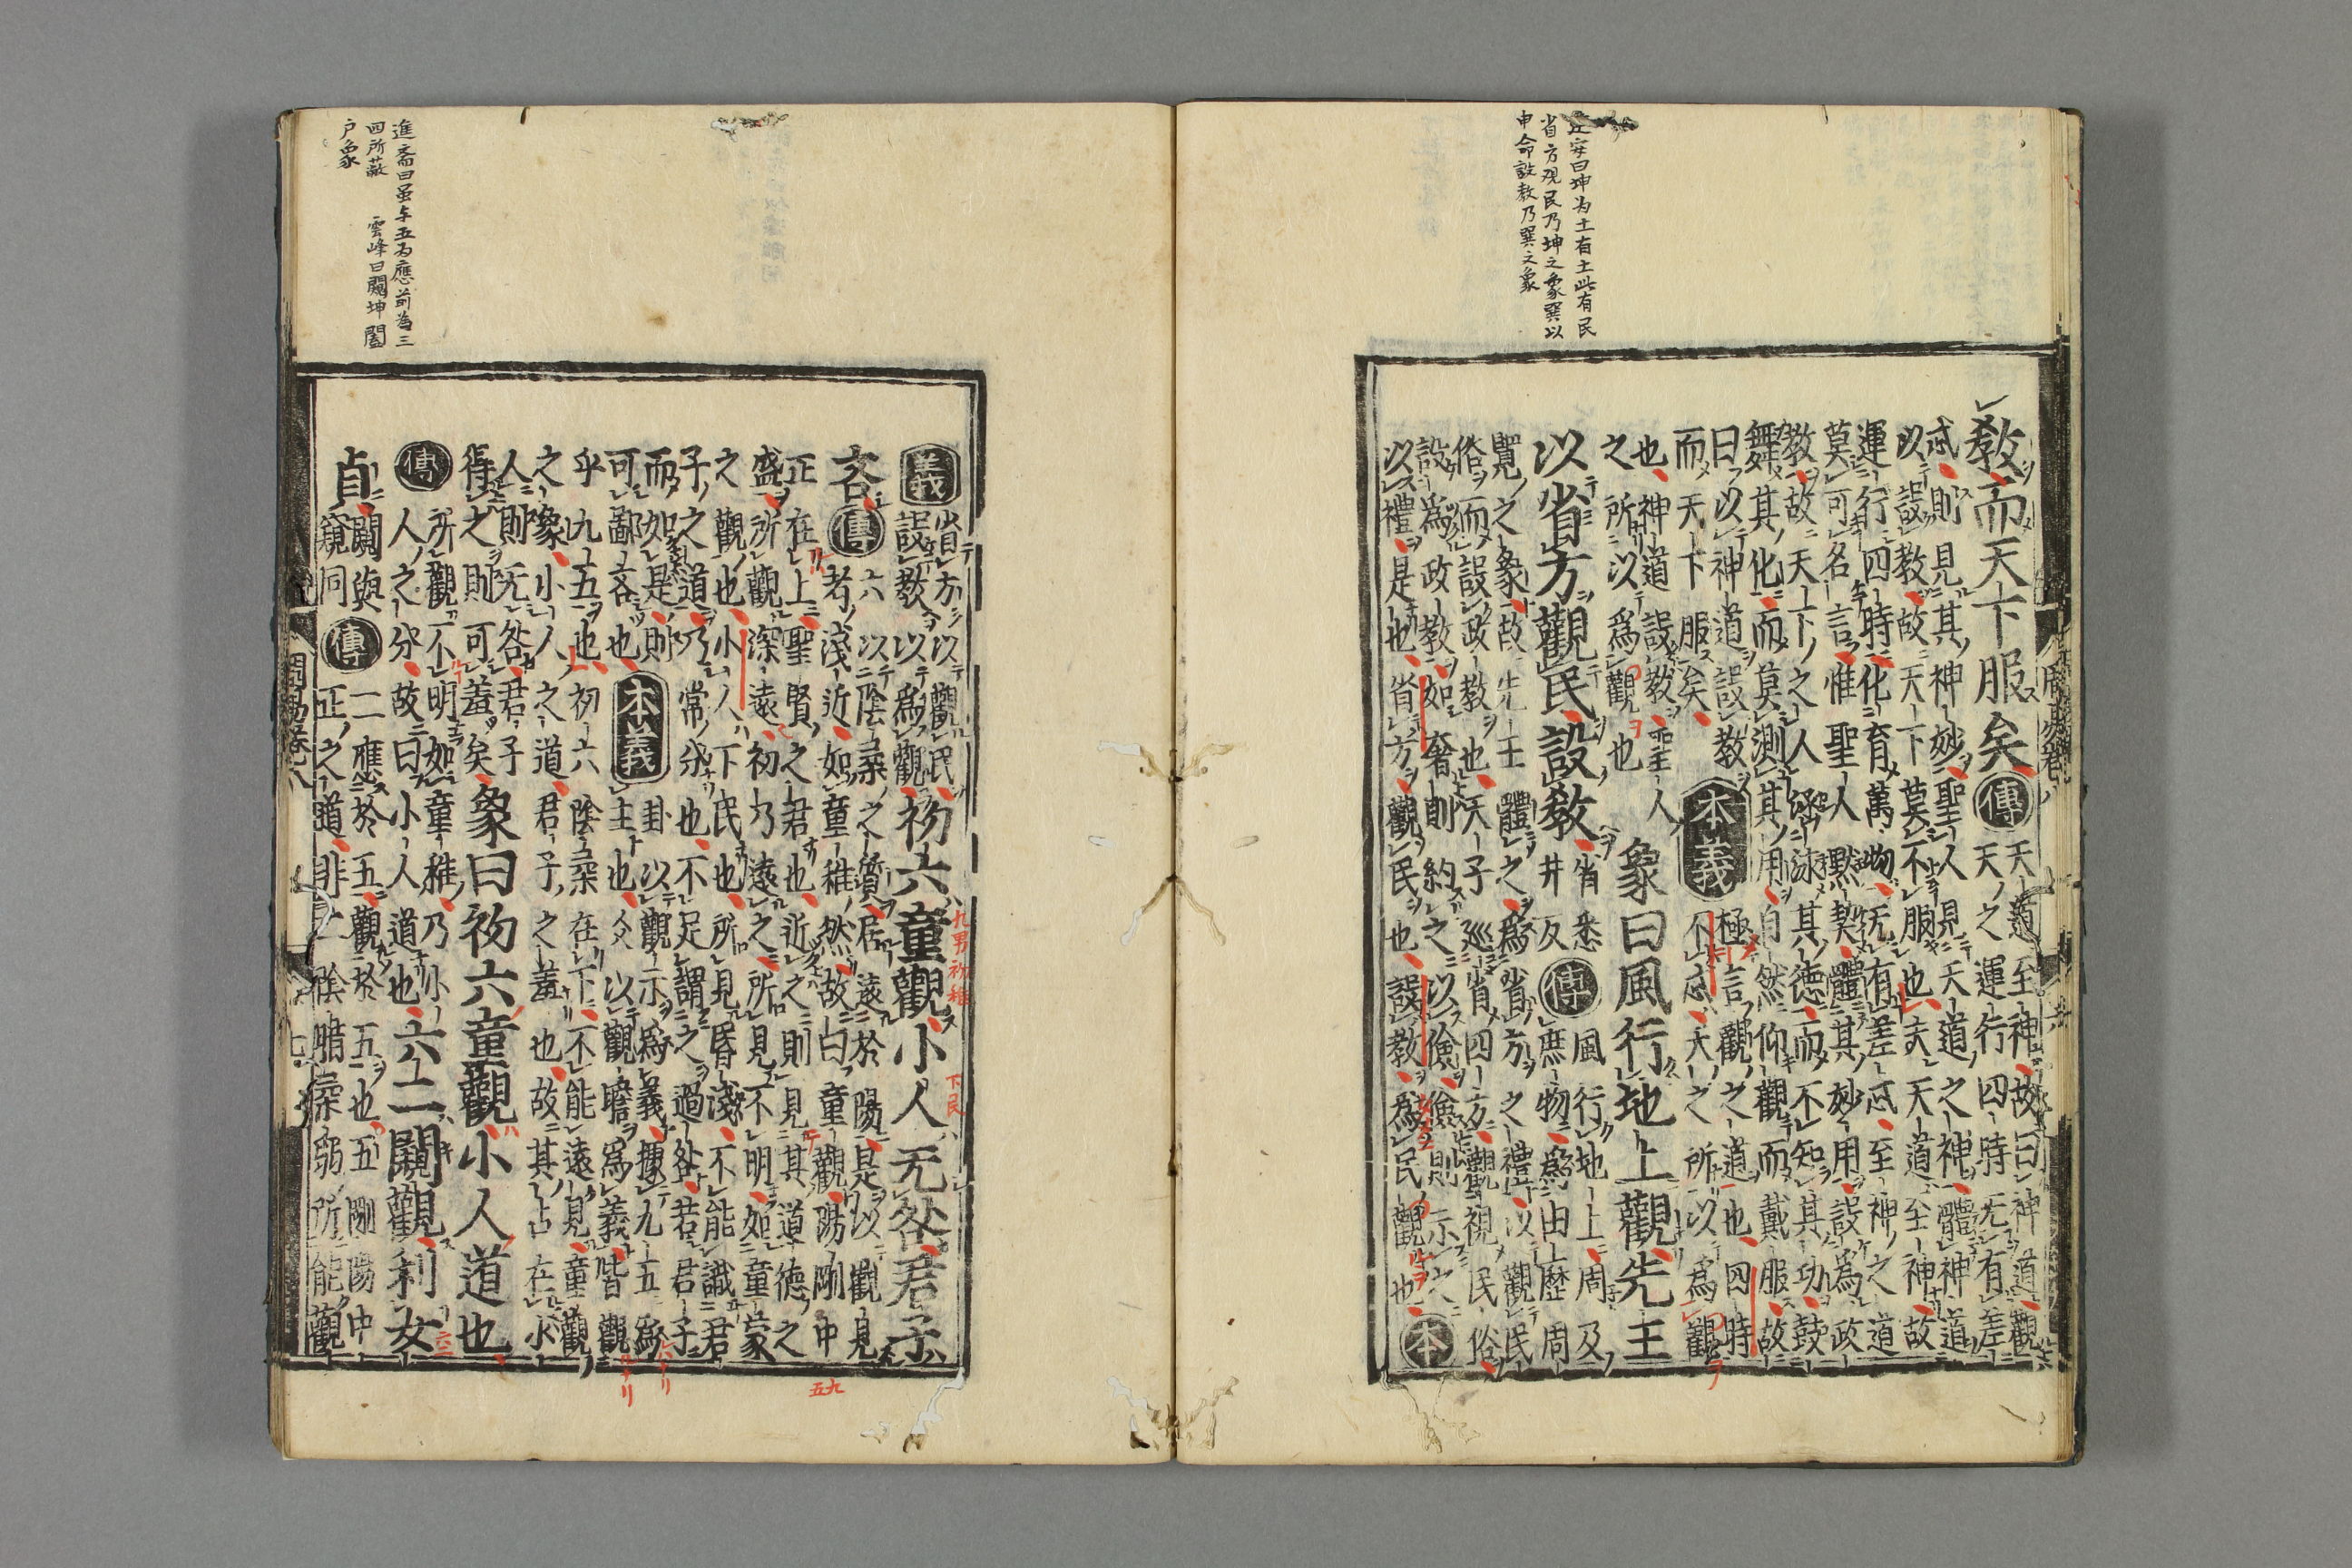 正安曰坤为土有土此有民
省方观民乃坤之象巽以
申命設教乃巽之象
教而天下服矣傳天道至神故曰神道觀
天之運行四時无有差
忒則見其神妙聖人見天道之神體神道
以設教故天下莫不服也夫天道至神故
運行四時化育萬物无有差忒至神之道
莫可名言惟聖人默契體其妙用設為政
教故天下之人涵泳其德而不知其功鼓
舞其化而莫測其用自然仰觀而戴服故
曰以神道設教
而天下服矣本義極言觀之道也四時
不忒天之所以為觀
也神道設教聖人
之所以為觀也象曰風行地上觀先王
以省方觀民設教省悉
井反傳風行地上周及
庶物為由歷周
覽之象故先王體之為省方之禮以觀民
俗而設政教也天子巡省四方觀視民俗
設為政教如奢則約之以儉儉則示之
以禮是也省方觀民也設教為民觀也本
進斎曰虽与五为應前為三
四所蔽 雲峰曰闢坤闔
户象
義省方以觀民
設教以為觀初六童觀小人无咎君子
吝傳六以陰柔之質居遠於陽是以觀見
者淺近如童稚然故曰童觀陽剛中
正在上聖賢之君也近之則見其道德之
盛所觀深遠初乃遠之所見不明如童蒙
之觀也小人下民也所見昏淺不能識君
子之道乃常分也不足謂之過咎若君子
而如是則
可鄙吝也本義卦以觀示為義據九五為
主也爻以觀瞻為義皆觀
乎九五也初六陰柔在下不能遠見童觀
之象小人之道君子之羞也故其占在小
人則无咎君子
得之則可羞矣象曰初六童觀小人道也
傳所觀不明如童稚乃小
人之分故曰小人道也六二闚觀利女
貞闚與
窺同傳二應於五觀於五也五剛陽中
正之道非二陰暗柔弱所能觀